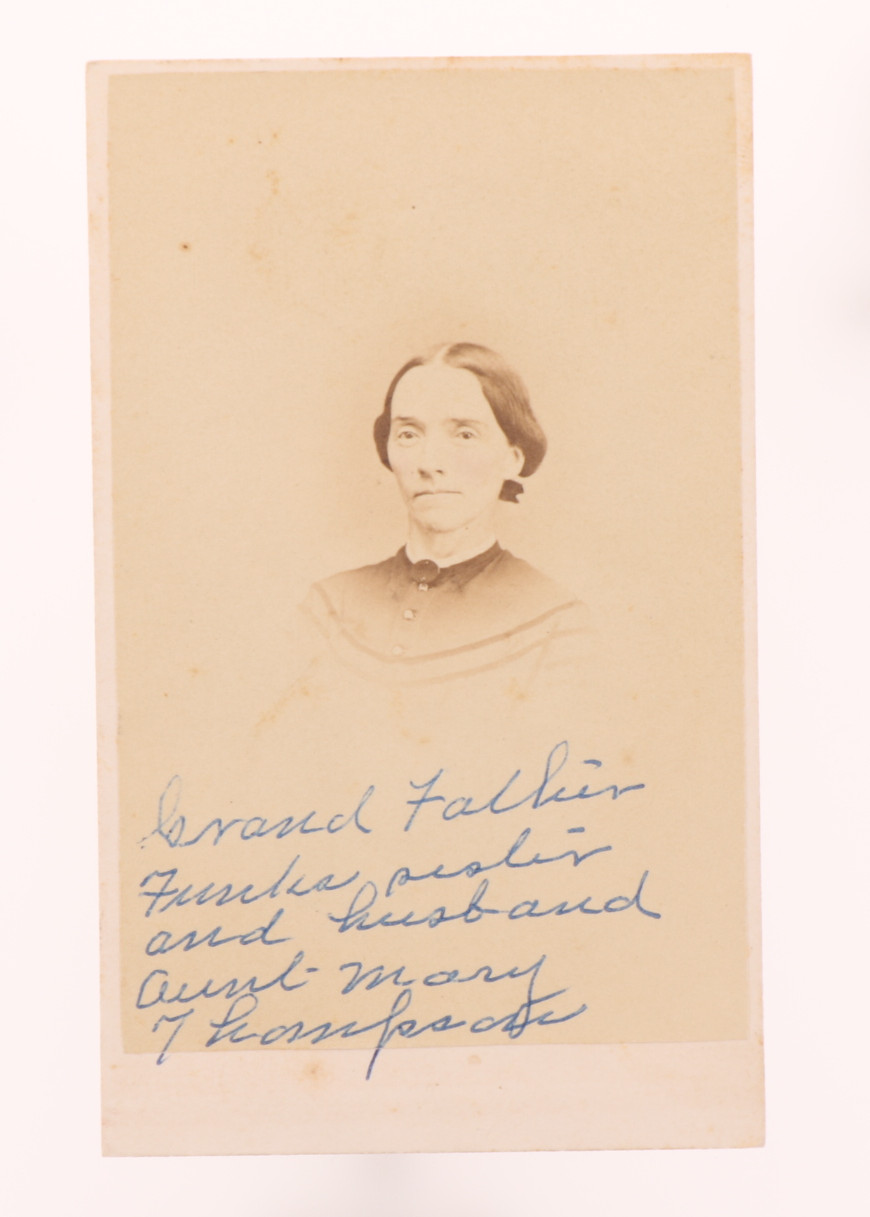 Grand Father
Funks sister
and husband
Aunt Mary
Thompson